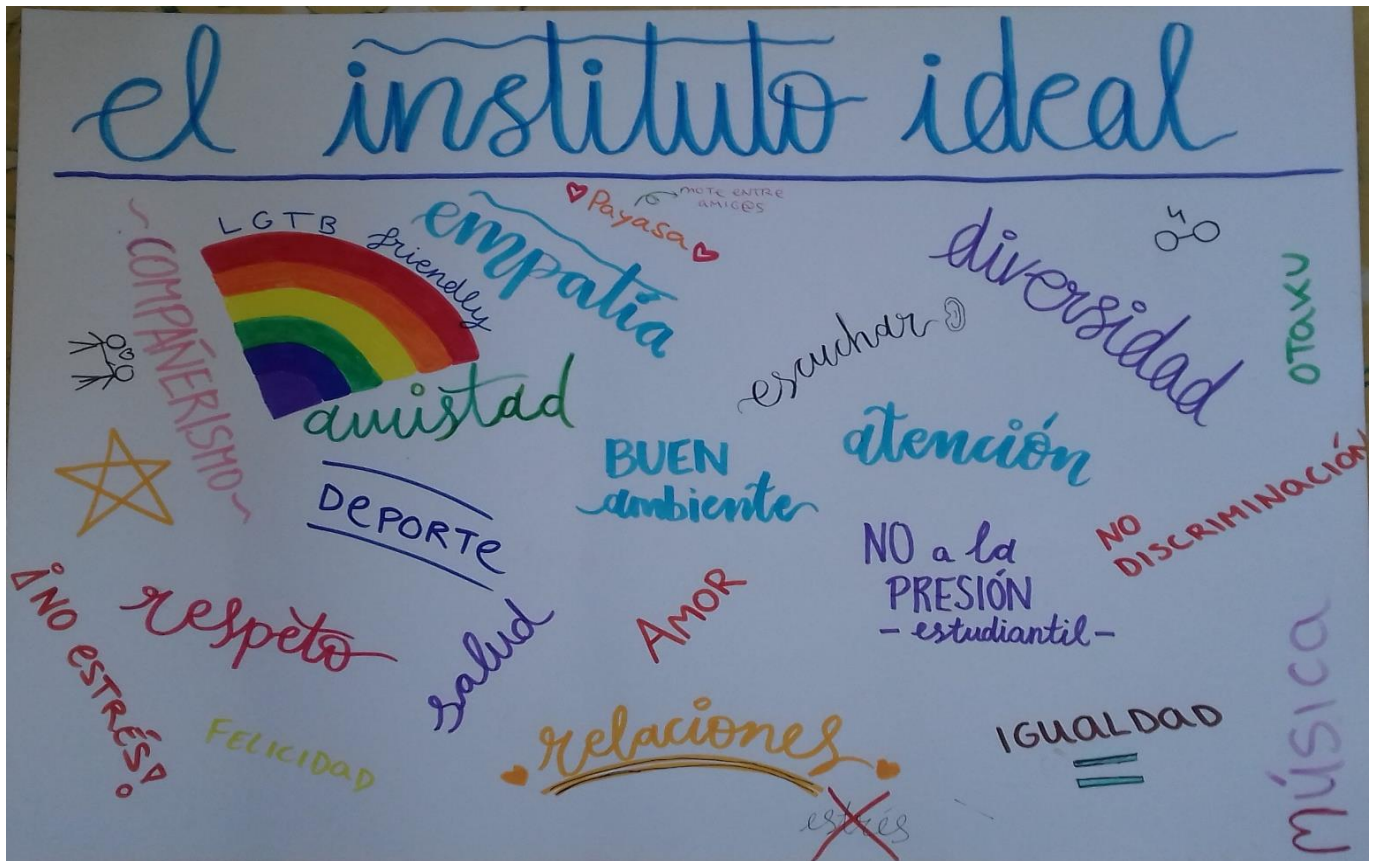 el instituto ideal
~COMPAÑERISMO~
LGTB friendly
empatía
Payasa
MOTE ENTRE
AMIG@S
diversidad
OTAKU
escuchar
amistad
BUEN
ambiente
atención
DEPORTE
NO
DISCRIMINACIÓN
NO a la
PRESIÓN
- estudiantil -
¡NO ESTRÉS!
respeto
salud
AMOR
FELICIDAD
relaciones
IGUALDAD
música
estrés